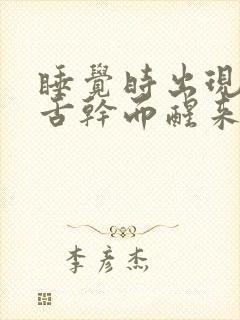 睡覺時出現
舌幹而醒來
李彥杰